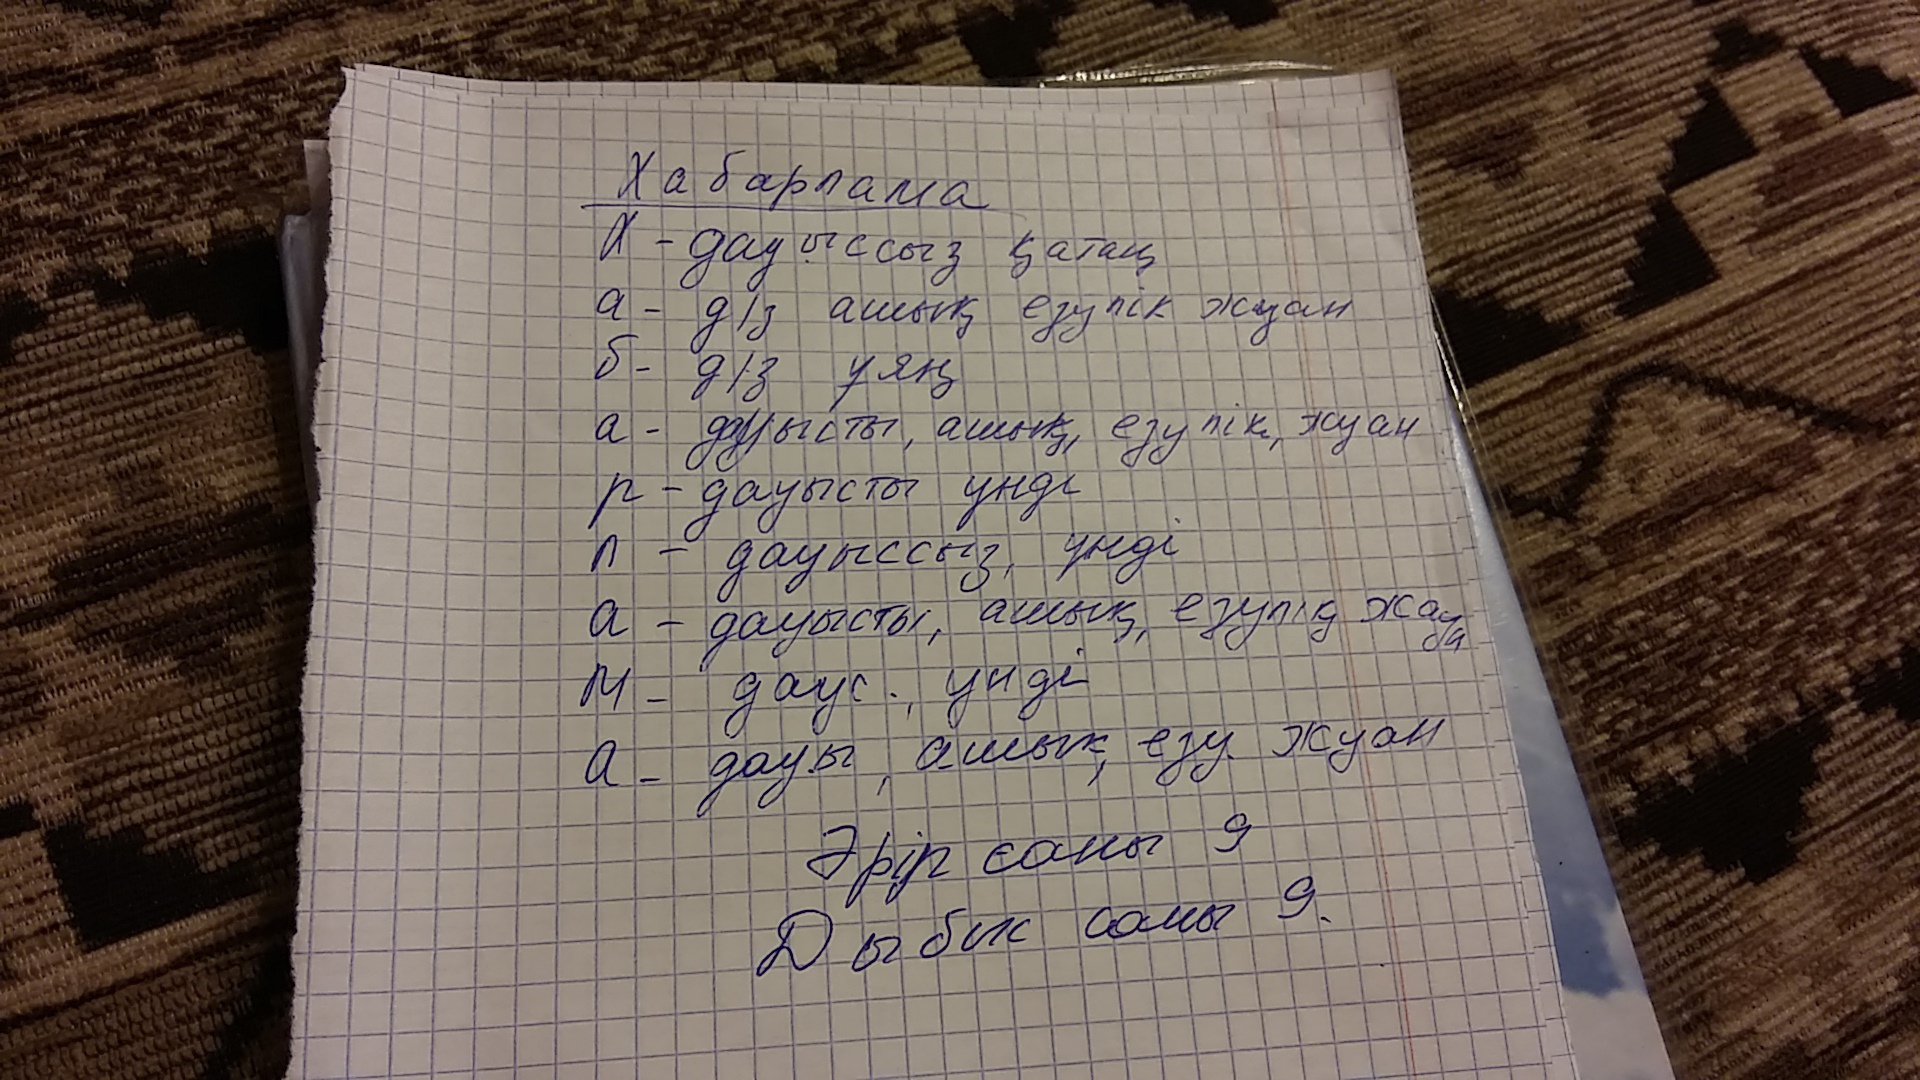 Хабарлама
Х - дауыссыз қатаң
а - д/з ашық езулік жуан
б - д/з ұяң
а - дауысты, ашық, езулік, жуан
р - дауысты үнді
л - дауыссыз, үнді
а - дауысты, ашық, езулік
М - даус., үнді
а - дауы, ашық, езу. жуан
Әріп саны 9
Дыбыс саны 9.